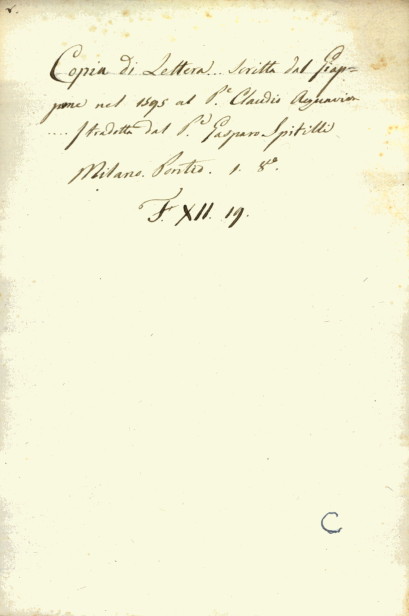 Copia di Lettera... scritta dal Giap=
pone nel 1595 al P.e Claudio Acquaviva
.... tradotta dal P.e Gasparo Spitilli
Milano. Pontio. 1. 8vo.
F. XII. 19.
C